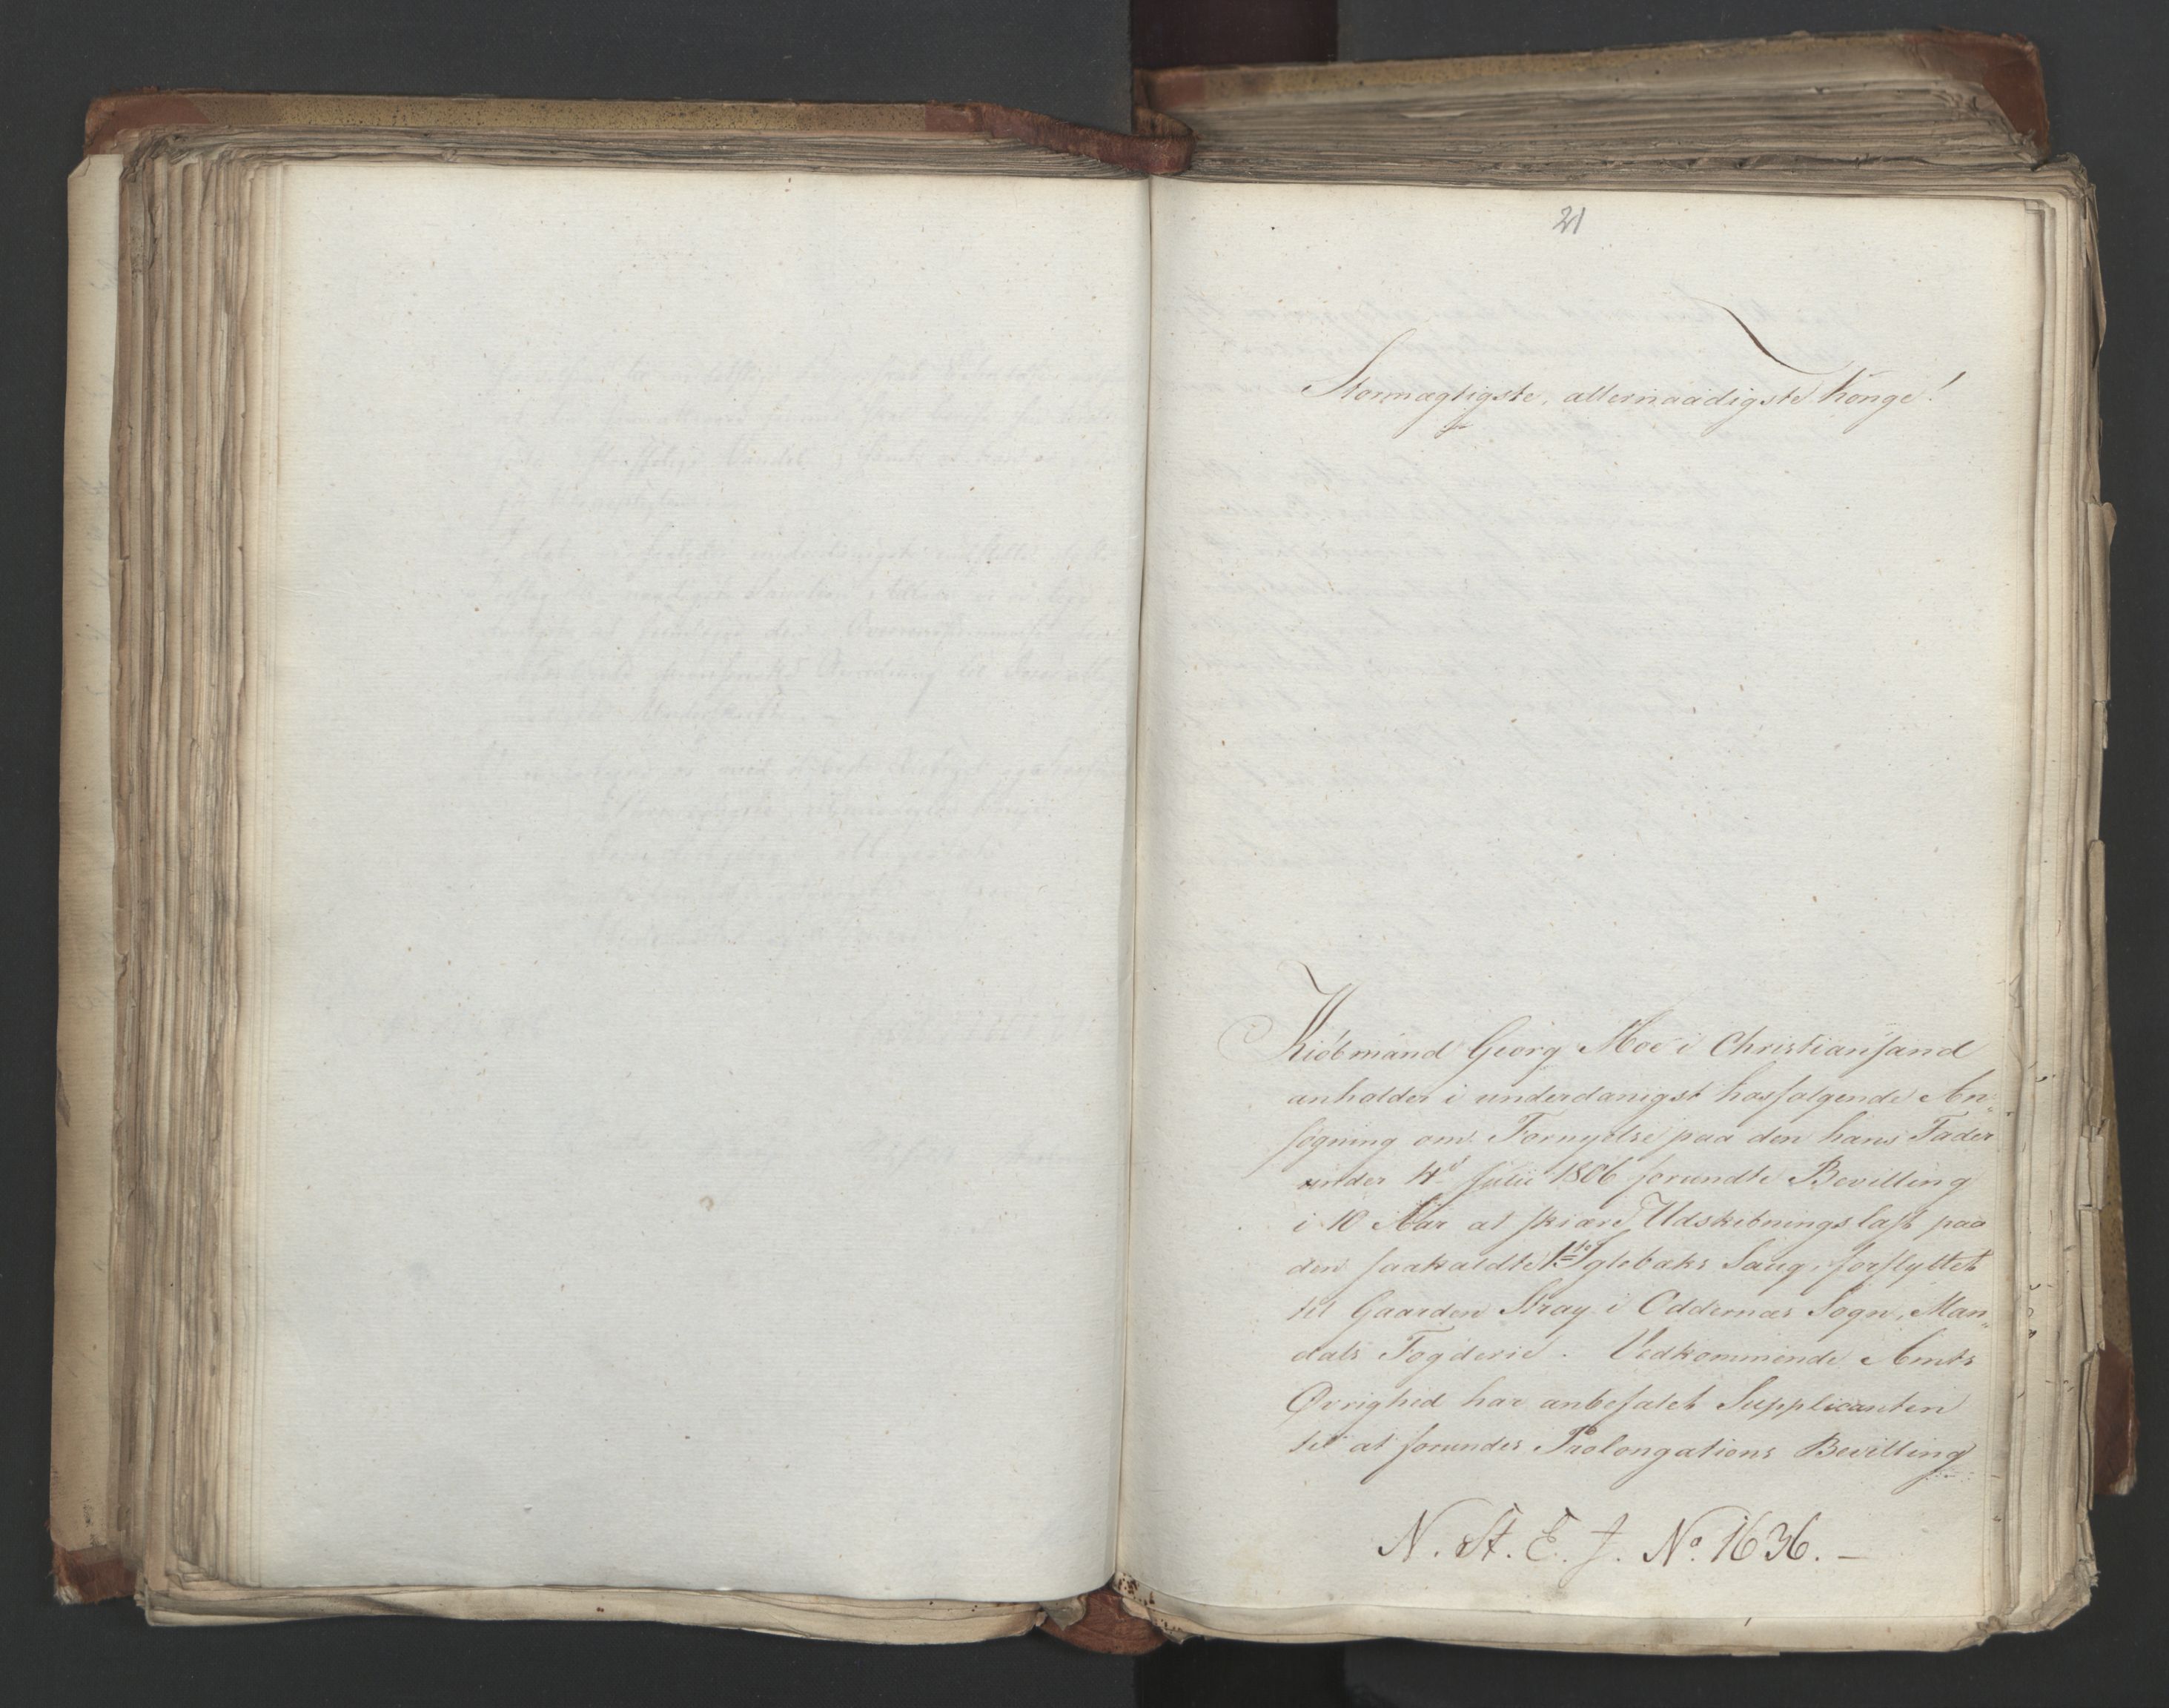 21
Stormægtigste, allernaadigste Konge!
Kiöbmand Georg Moe i Christiansand
anholder i underdanigst hosfølgende An„
søgning om Fornyelse paa den hans Fader
under 4d Julii 1806 forundte Bevilling
i 10 Aar at skiære Udskibningslast paa
den saakaldte 1ste Iglebaks Saug, forflyttet
til Gaarden Stray i Oddernæs Sogn, Man„
dals Fogderie. Vedkommende Amts
Øvrighed har anbefalet Supplicanten
til at forundes Prolongations Bevilling
N. St. E. J. No. 1636. –